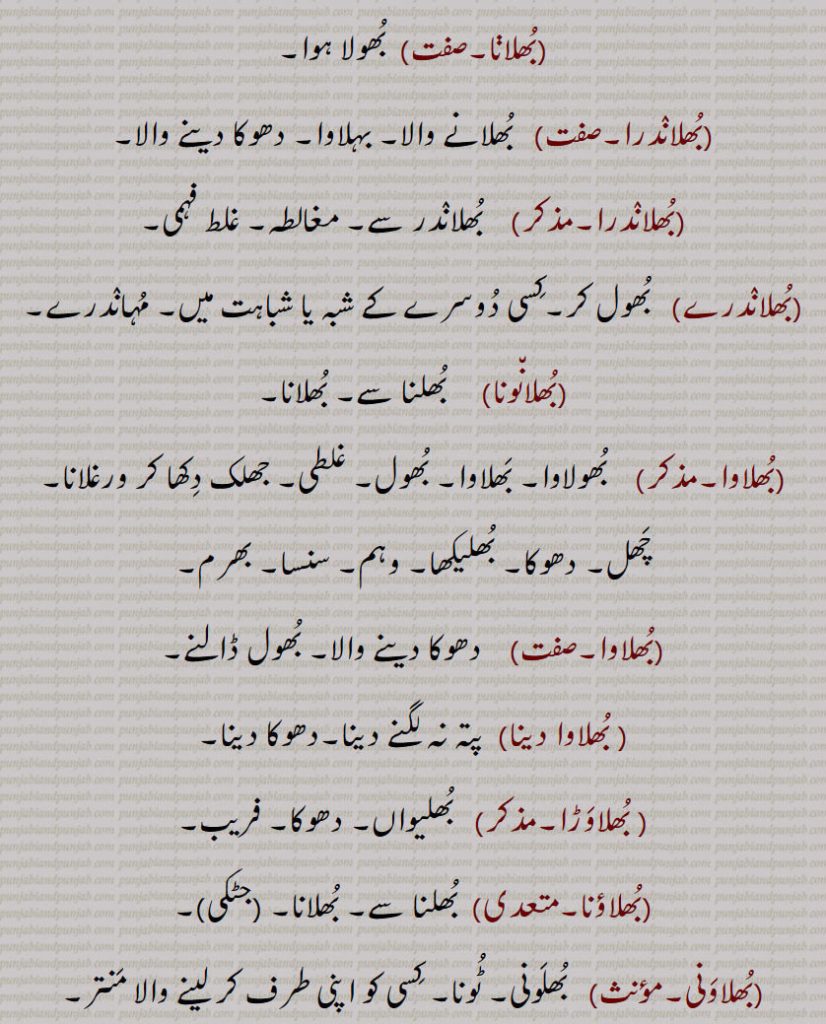 (بُھلانْا۔صفت) بُھولا ہوا۔
(بُھلانْدرا۔صفت) بُھلانے والا۔ بہلاوا۔ دھوکا دینے والا۔
(بُھلانْدرا۔مذکر) بُھلانْدر سے۔ مغالطہ۔ غلط فہمی۔
(بُھلانْدرے) بُھول کر۔ کِسی دُوسرے کے شبہ یا شباہت میں۔ مُہانْدرے۔
(بُھلانّونا) بُھلنا سے۔ بُھلانا۔
(بُھلاوا۔مذکر) بُھولاوا۔ بَھلاوا۔ بُھول۔ غلطی۔ جھلک دِکھا کر ورغلانا۔
چَھل۔ دھوکا۔ بُھلیکھا۔ وہم۔ سنسا۔ بھرم۔
(بُھلاوا۔صفت) دھوکا دینے والا۔ بُھول ڈالنے۔
( بُھلاوا دینا) پتہ نہ لگنے دینا۔دھوکا دینا۔
( بُھلاوَڑا۔مذکر) بُھلیواں۔ دھوکا۔ فریب۔
(بُھلاؤنا۔متعدی) بُھلنا سے۔ بُھلانا۔ (جٹکی)۔
(بُھلاوَنی۔مؤنث) بُھلَونی۔ ٹُونا۔ کِسی کو اپنی طرف کر لینے والا مَنتر۔